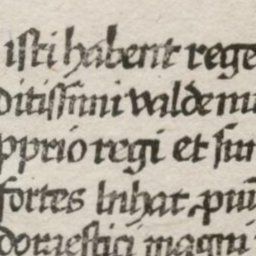 isti habent rege
ditissimi valde mu
pprio regi et sun
fortes
domestici magni